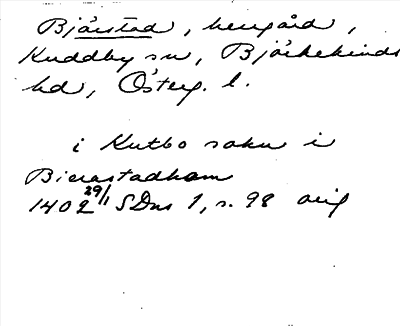 Bjärstad, herrgård,
Kuddby sn, Björkekinds
hd, Österg. l.
i Kutbo sokn i
Bierastadhom
1402 29/1 SDns 1, s. 98 orig